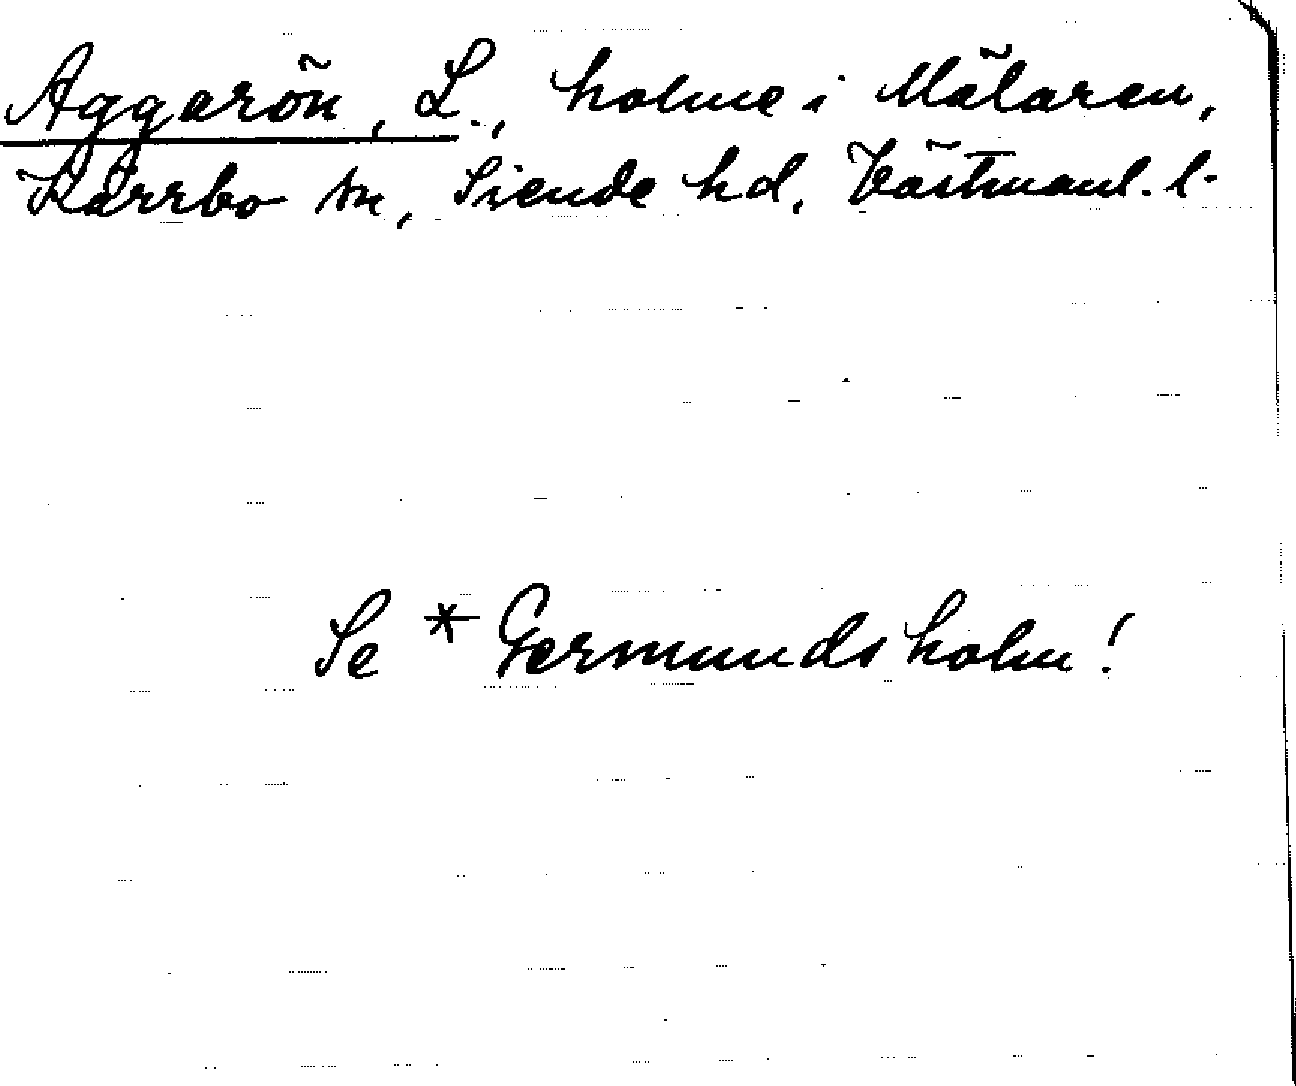 Aggarön, L., holme i Mälaren,
Kärrbo sn, Siende hd, Västmanl. l.
Se * Germundsholm!